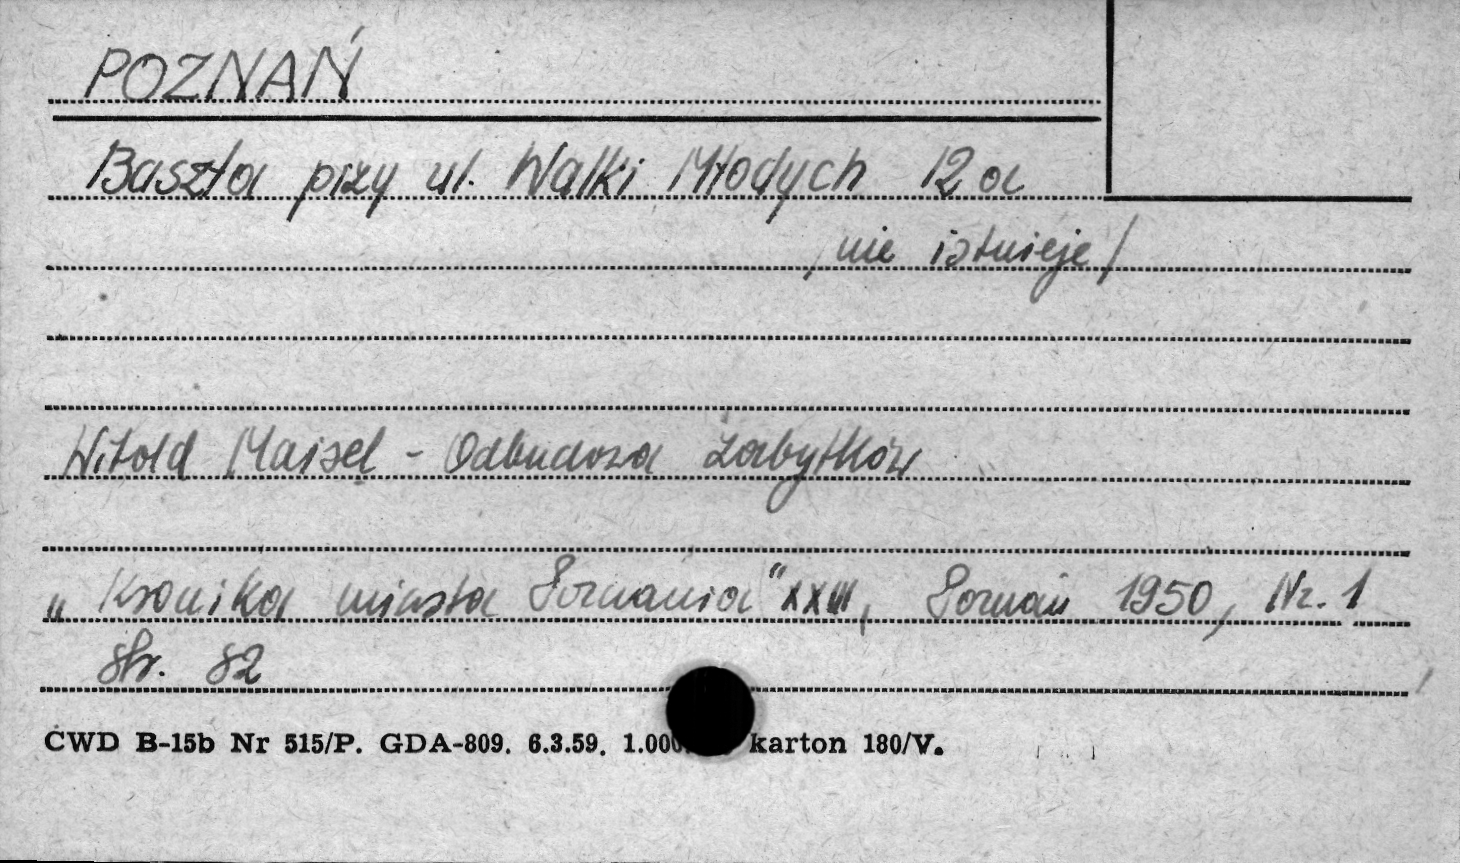 POZNAŃ
Baszta przy ul. Walki Młodych 12a
/nie istnieje/
Witold Maisel - Odbudowa zabytków
„Kronika miasta Poznania" XXIII, Poznań 1950, Nr. 1
str. 82
CWD B-15b Nr 515/P. GDA-809. 6.3.59. 1.000. karton 180/V.